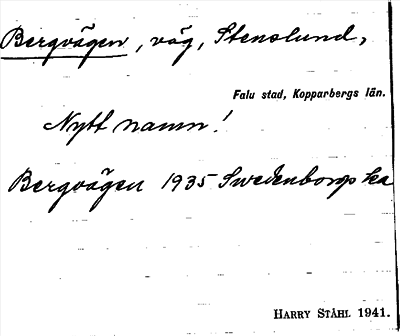 Bergvägen, väg, Stenslund,
Falu stad, Kopparbergs län.
Nytt namn!
Bergvägen 1935 Swedenborgs ka
HARRY STÅHL 1941.